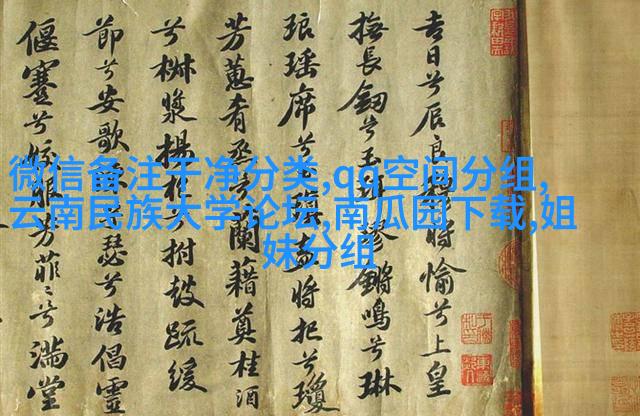 微信备注干净分类,qq空间分组,
云南民族大学论坛,南瓜园下载,姐
妹分组
吉日兮辰良穆將愉兮上皇
撫長劒兮玉珥璆鏘鳴兮琳
琅瑤席兮玉瑱盍將把兮瓊
芳蕙肴蒸兮蘭藉奠桂酒
兮椒漿揚枹兮拊鼓疏緩
節兮安歌瑟兮浩倡靈
偃蹇兮姣服芳菲〻兮滿堂